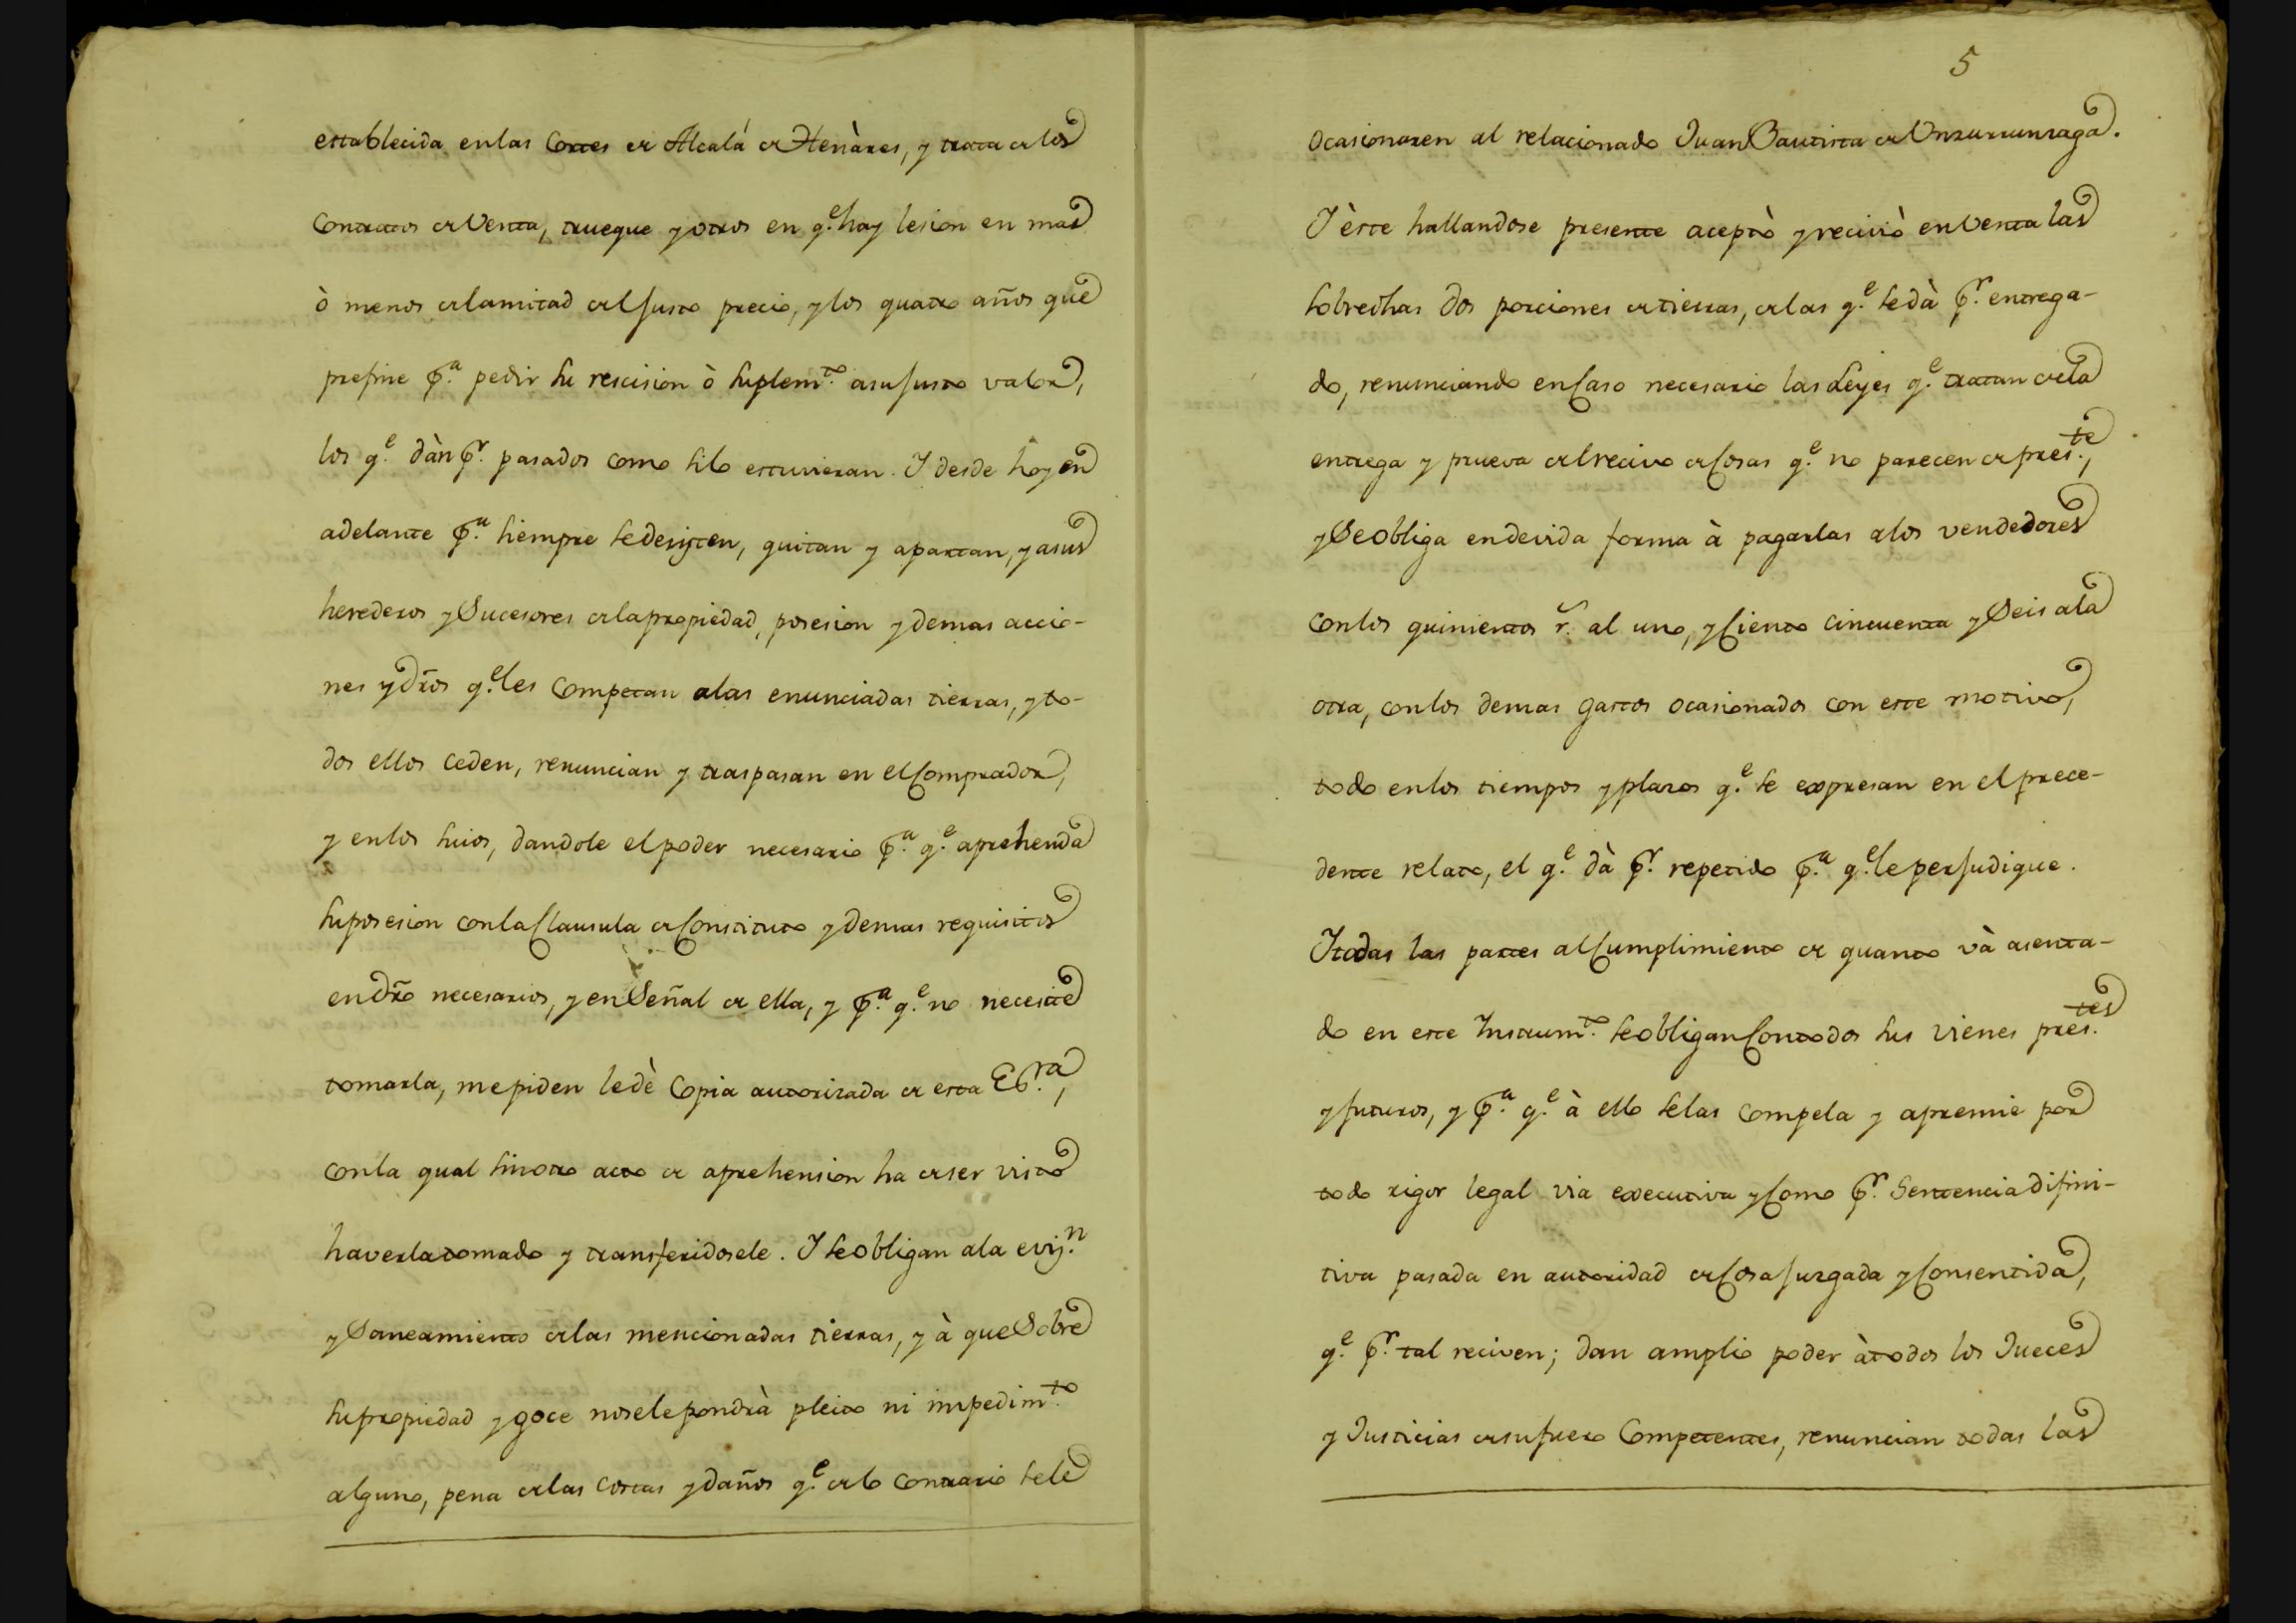 establecida en las Cortes de Alcalá de Henàres, y trata de los
Contratos de Venta, trueque y otros en q.e hay lesion en mas
ò menos de la mitad del justo precio, y los quatro años que
prefine p.a pedir su rescision ò suplem.to a su justo valor,
los q.e dàn p.r pasados como si lo estuvieran. I desde hoy en
adelante p.a siempre se desisten, quitan y apartan, y a sus
herederos y Sucesores de la propiedad, posesion y demas accio-
nes y dr̃os q.e les Competan a las enunciadas tierras, y to-
dos ellos ceden, renuncian y traspasan en el Comprador,
y en los suios, dandole el poder necesario p.a q.e aprehenda
su posesion con la Clausula de Constituto y demas requisitos
en dr̃o necesarios, y en Señal de ella, y p.a q.e no necesite
tomarla, me piden le dè Copia autorizada de esta Es.ra,
con la qual sin otro acto de aprehension ha de ser visto
haverla tomado y transferidosele. I se obligan a la evij.n
y Saneamiento de las mencionadas tierras, y à que Sobre
su propiedad y goce no se le pondrà pleito ni impedim.to
alguno, pena de las costas y daños q.e de lo Contrario se le
5
Ocasionaren al relacionado Juan Bautista de Unzurrunzaga.
I èste hallandose presente aceptò y reciviò en Venta las
sobredhas dos porciones de tierras, de las q.e se dà p.r entrega-
do, renunciando en Caso necesario las Leyes q.e tratan de la
entrega y prueva del recivo de Cosas q.e no parecen de pres.te,
y Se obliga en devida forma à pagarlas a los vendedores
con los quinientos r.s al uno, y Ciento cincuenta y Seis a la
otra, con los demas gastos ocasionados con este motivo,
todo en los tiempos y plazos q.e se expresan en el prece-
dente relato, el q.e dà p.r repetido p.a q.e le perjudique.
I todas las partes al Cumplimiento de quanto và asenta-
do en este Instrum.to se obligan Con todos sus vienes pres.tes
y futuros, y p.a q.e à ello se las compela y apremie por
todo rigor legal via executiva y Como p.r Sentencia difini-
tiva pasada en autoridad de Cosa juzgada y Consentida,
q.e p.r tal reciven; dan amplio poder à todos los Jueces
y Justicias de su fuero Competentes, renuncian todas las